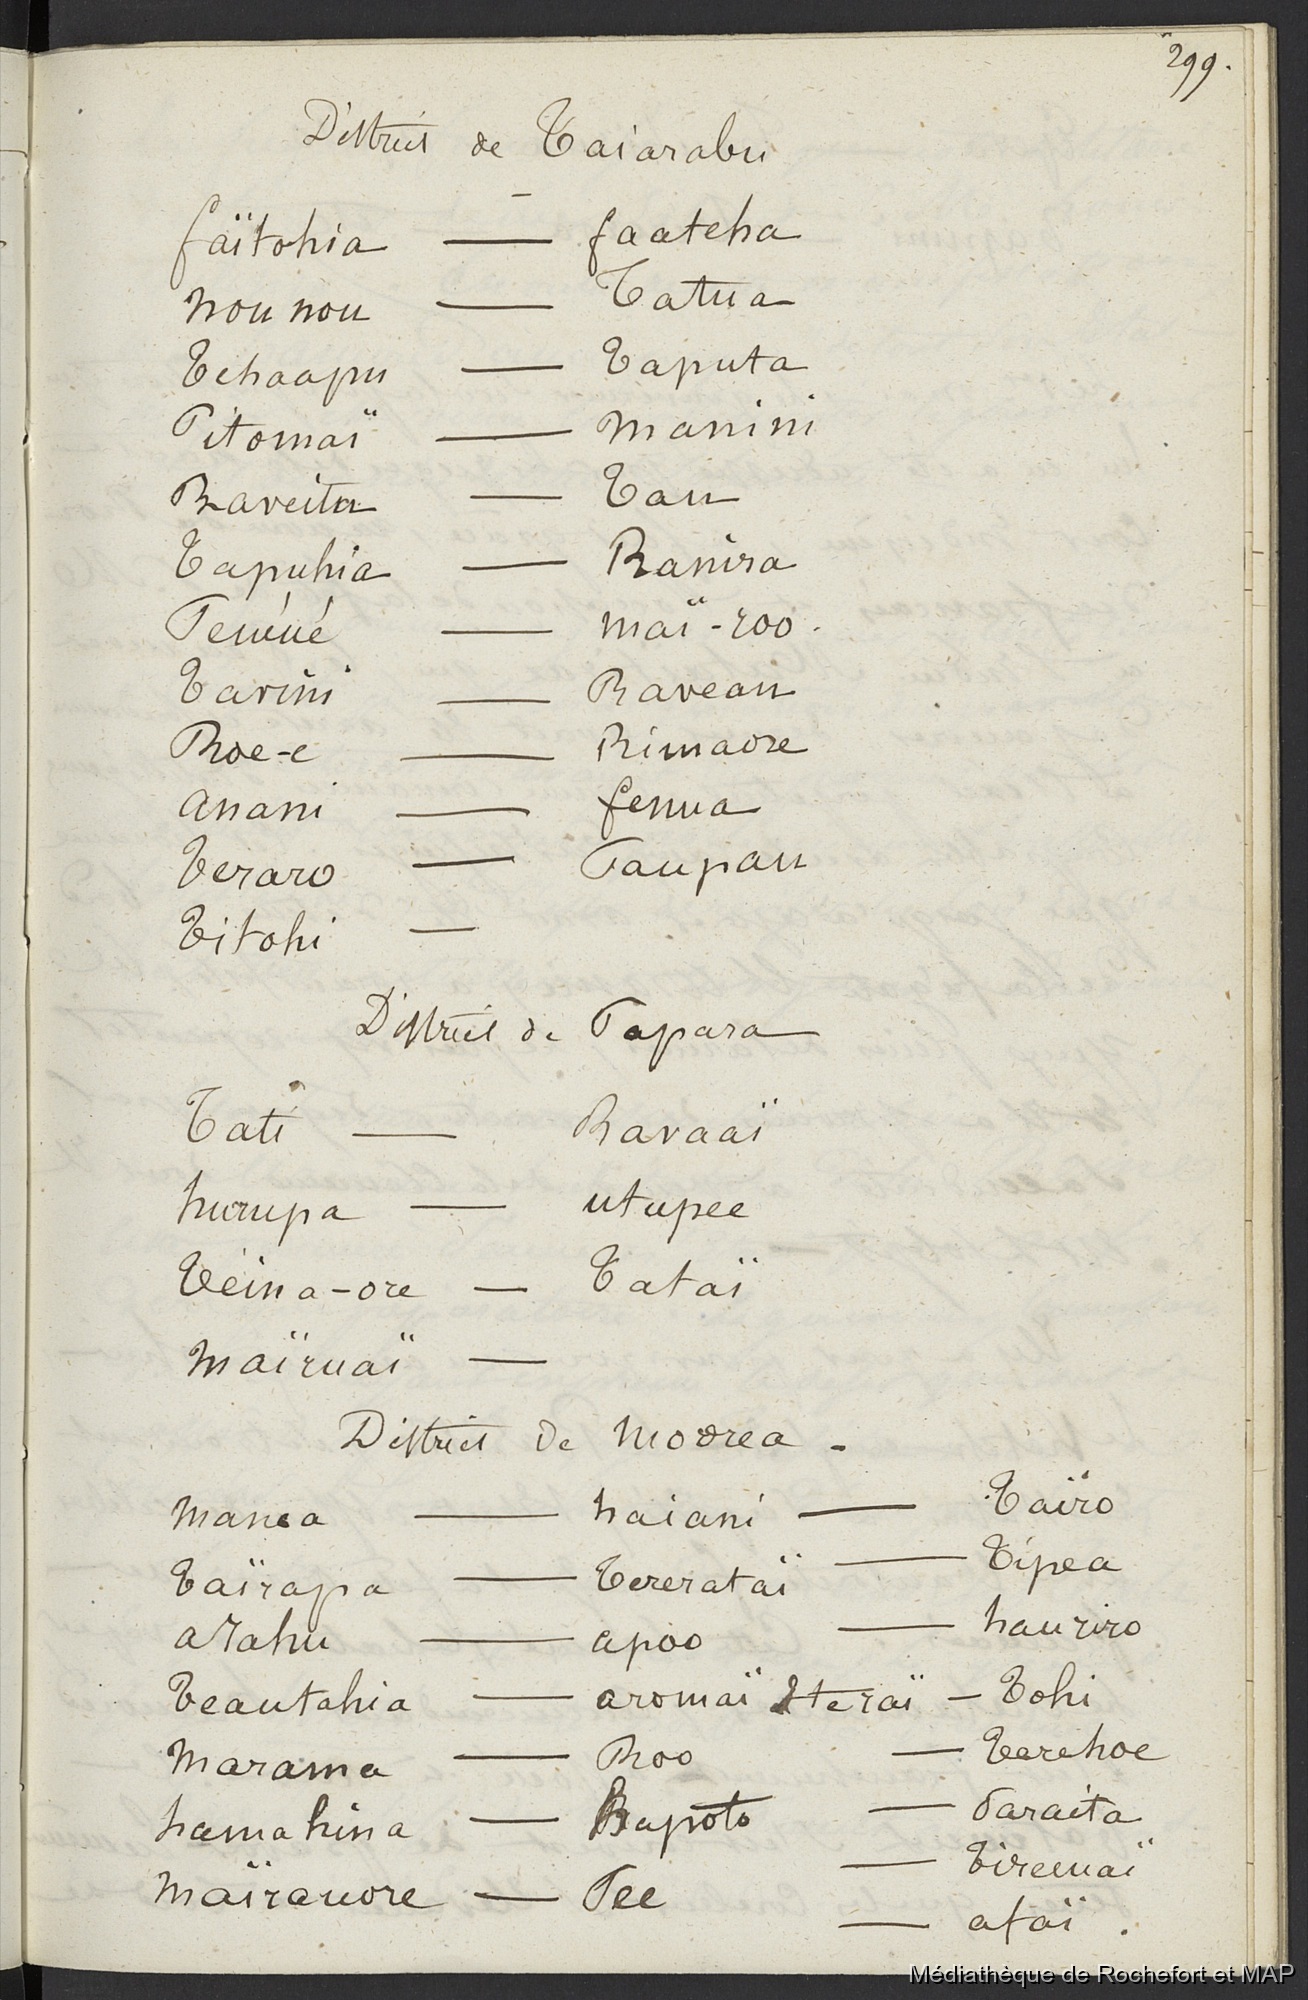 299.
District de Taiarabu
faïtohia — faateha
nou nou — Tatua
Tehaapu — Taputa
Pitomaï — manini
Raveita — Tau
Tapuhia — Ranira
Teuéué — maï-roo.
Tavini — Raveau
Roe-e — Rimaore
anani — fenua
Teraro — Taupau
Titohi —
District de Papara
Tati — Ravaaï
hurupa — utupee
Teina-ore — Tataï
maïruaï —
District de Moorea -
manea — haiani — Taïro
Taïrapa — Tererataï — Tipea
arahu — apoo — hauriro
Teautahia — aromaï Iteraï — Tohi
marama — Roo — Tarehoe
hamahina — Rapoto — Taraita
— Tireeuaï
maïrauore — Tee
— afaï.
Médiathèque de Rochefort et MAP